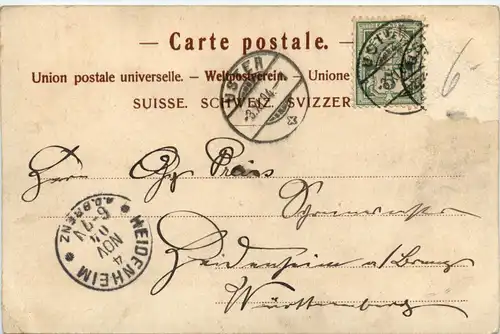 — Carte postale. —
Union postale universelle. — Weltpostverein. — Unione
SUISSE. SCHWEIZ. SVIZZER
USTER
-3.XI.04.
USTER
6
Herrn Preis
Heidenheim a/Brenz
Württemberg
HEIDENHEIM
A.D. BRENZ
4 NOV 04
6-7V